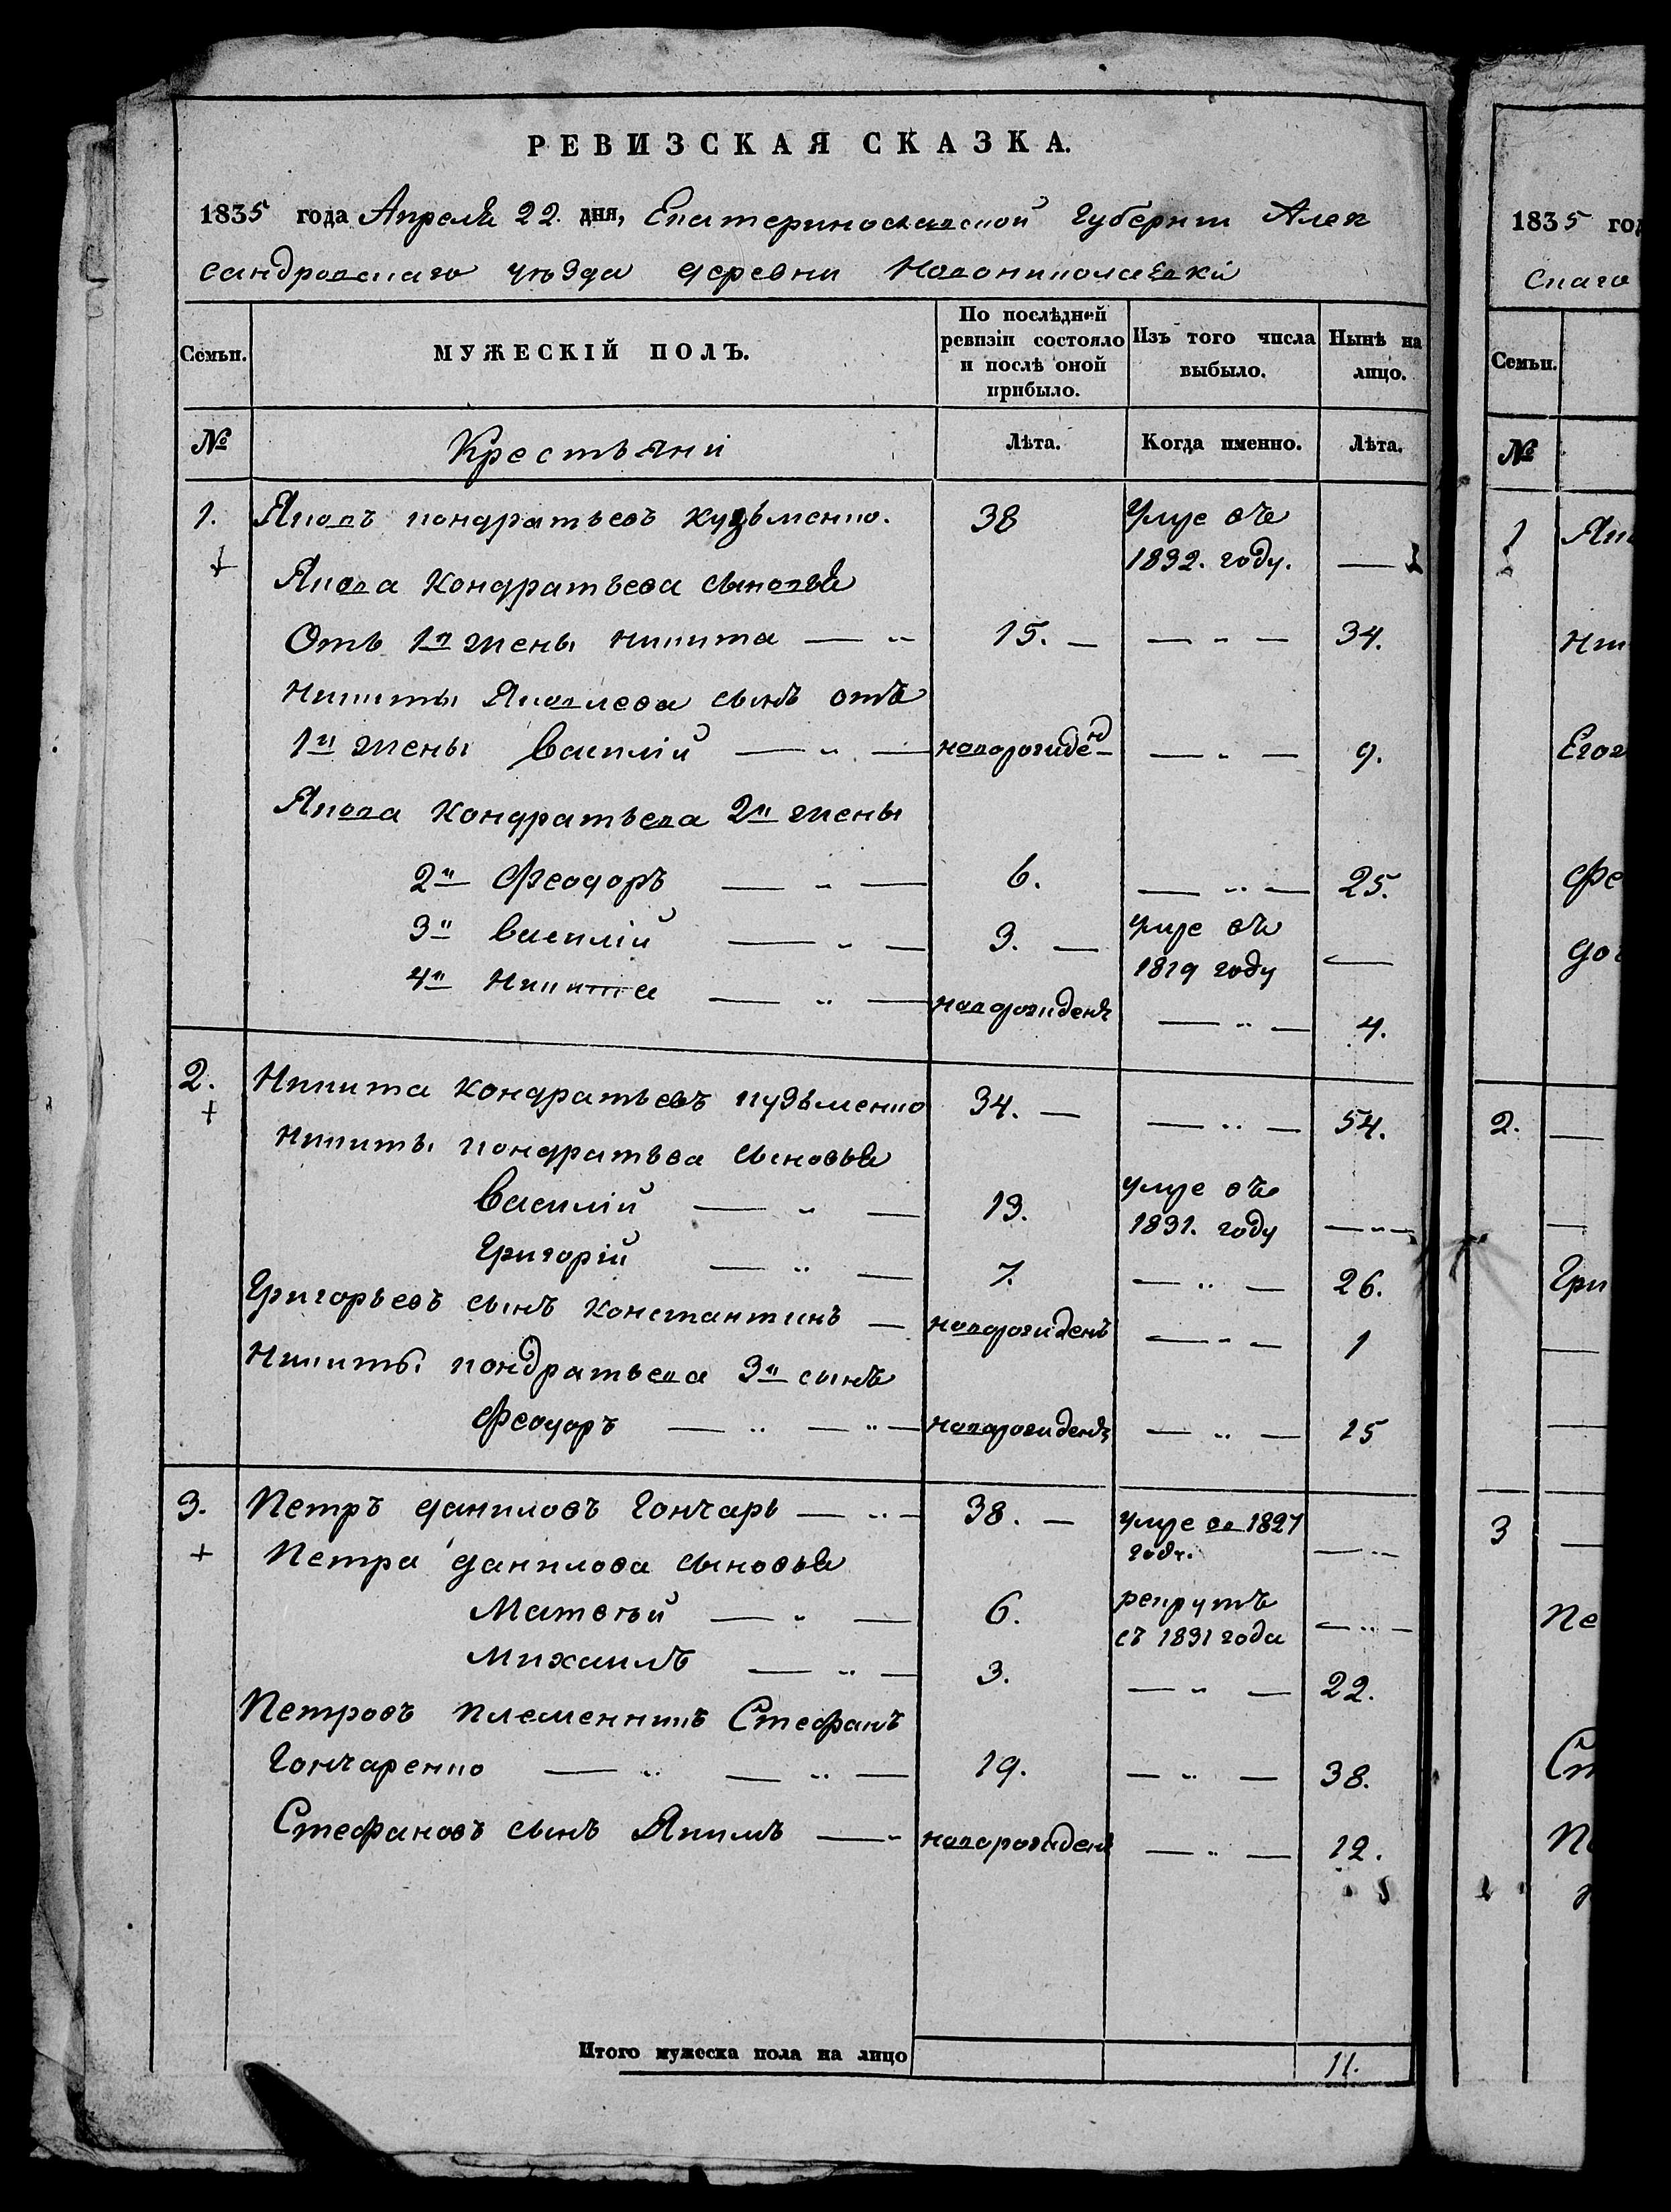 РЕВИЗСКАЯ СКАЗКА.
1835 года Апреля 22. дня, Екатеринославской губернии Алек
сандровскаго уѣзда деревни Новониколаевки
Семьи.
МУЖЕСКІЙ ПОЛЪ.
По послѣдней ревизіи состояло и послѣ оной прибыло.
Изъ того числа выбыло.
Нынѣ на лицо.
№ Крестьяни Лѣта. Когда именно. Лѣта.
1. Яковъ кондратьевъ кузьменко. 38 Умре въ
1832. году.
Якова Кондратьева сыновья
Отъ 1й жены никита 15. 34.
Никиты Яковлева сынъ отъ
1й жены Василій новорожден 9.
Якова Кондратьева 2й жены
2й Феодоръ 6. 25.
3й Василій 3. умре въ
1819 году
4й Никита новорожденъ 4.
2. Никита Кондратьевъ кузьменко 34. 54.
Никиты кондратьва сыновья
Василій 13. умре въ
1831. году
Григорій 7. 26.
Григорьевъ сынъ Константинъ новорожденъ 1
Никиты кондратьева 3й сынъ
Феодоръ новорожденъ 15
3. Петръ даниловъ Гончарь 38. умре во 1827
годꙋ.
Петра данилова сыновья
Матвѣй 6. рекрутъ
съ 1831 года
Михаилъ 3. 22.
Петровъ племенникъ Стефанъ
Гончаренко 19. 38.
Стефановъ сынъ Якимъ новорожденъ 12.
Итого мужеска пола на лицо 11.
1835 год
скаго
Семьи.
№
1 Як
Ник
Фе
2.
Гри
3
Пе
Ст